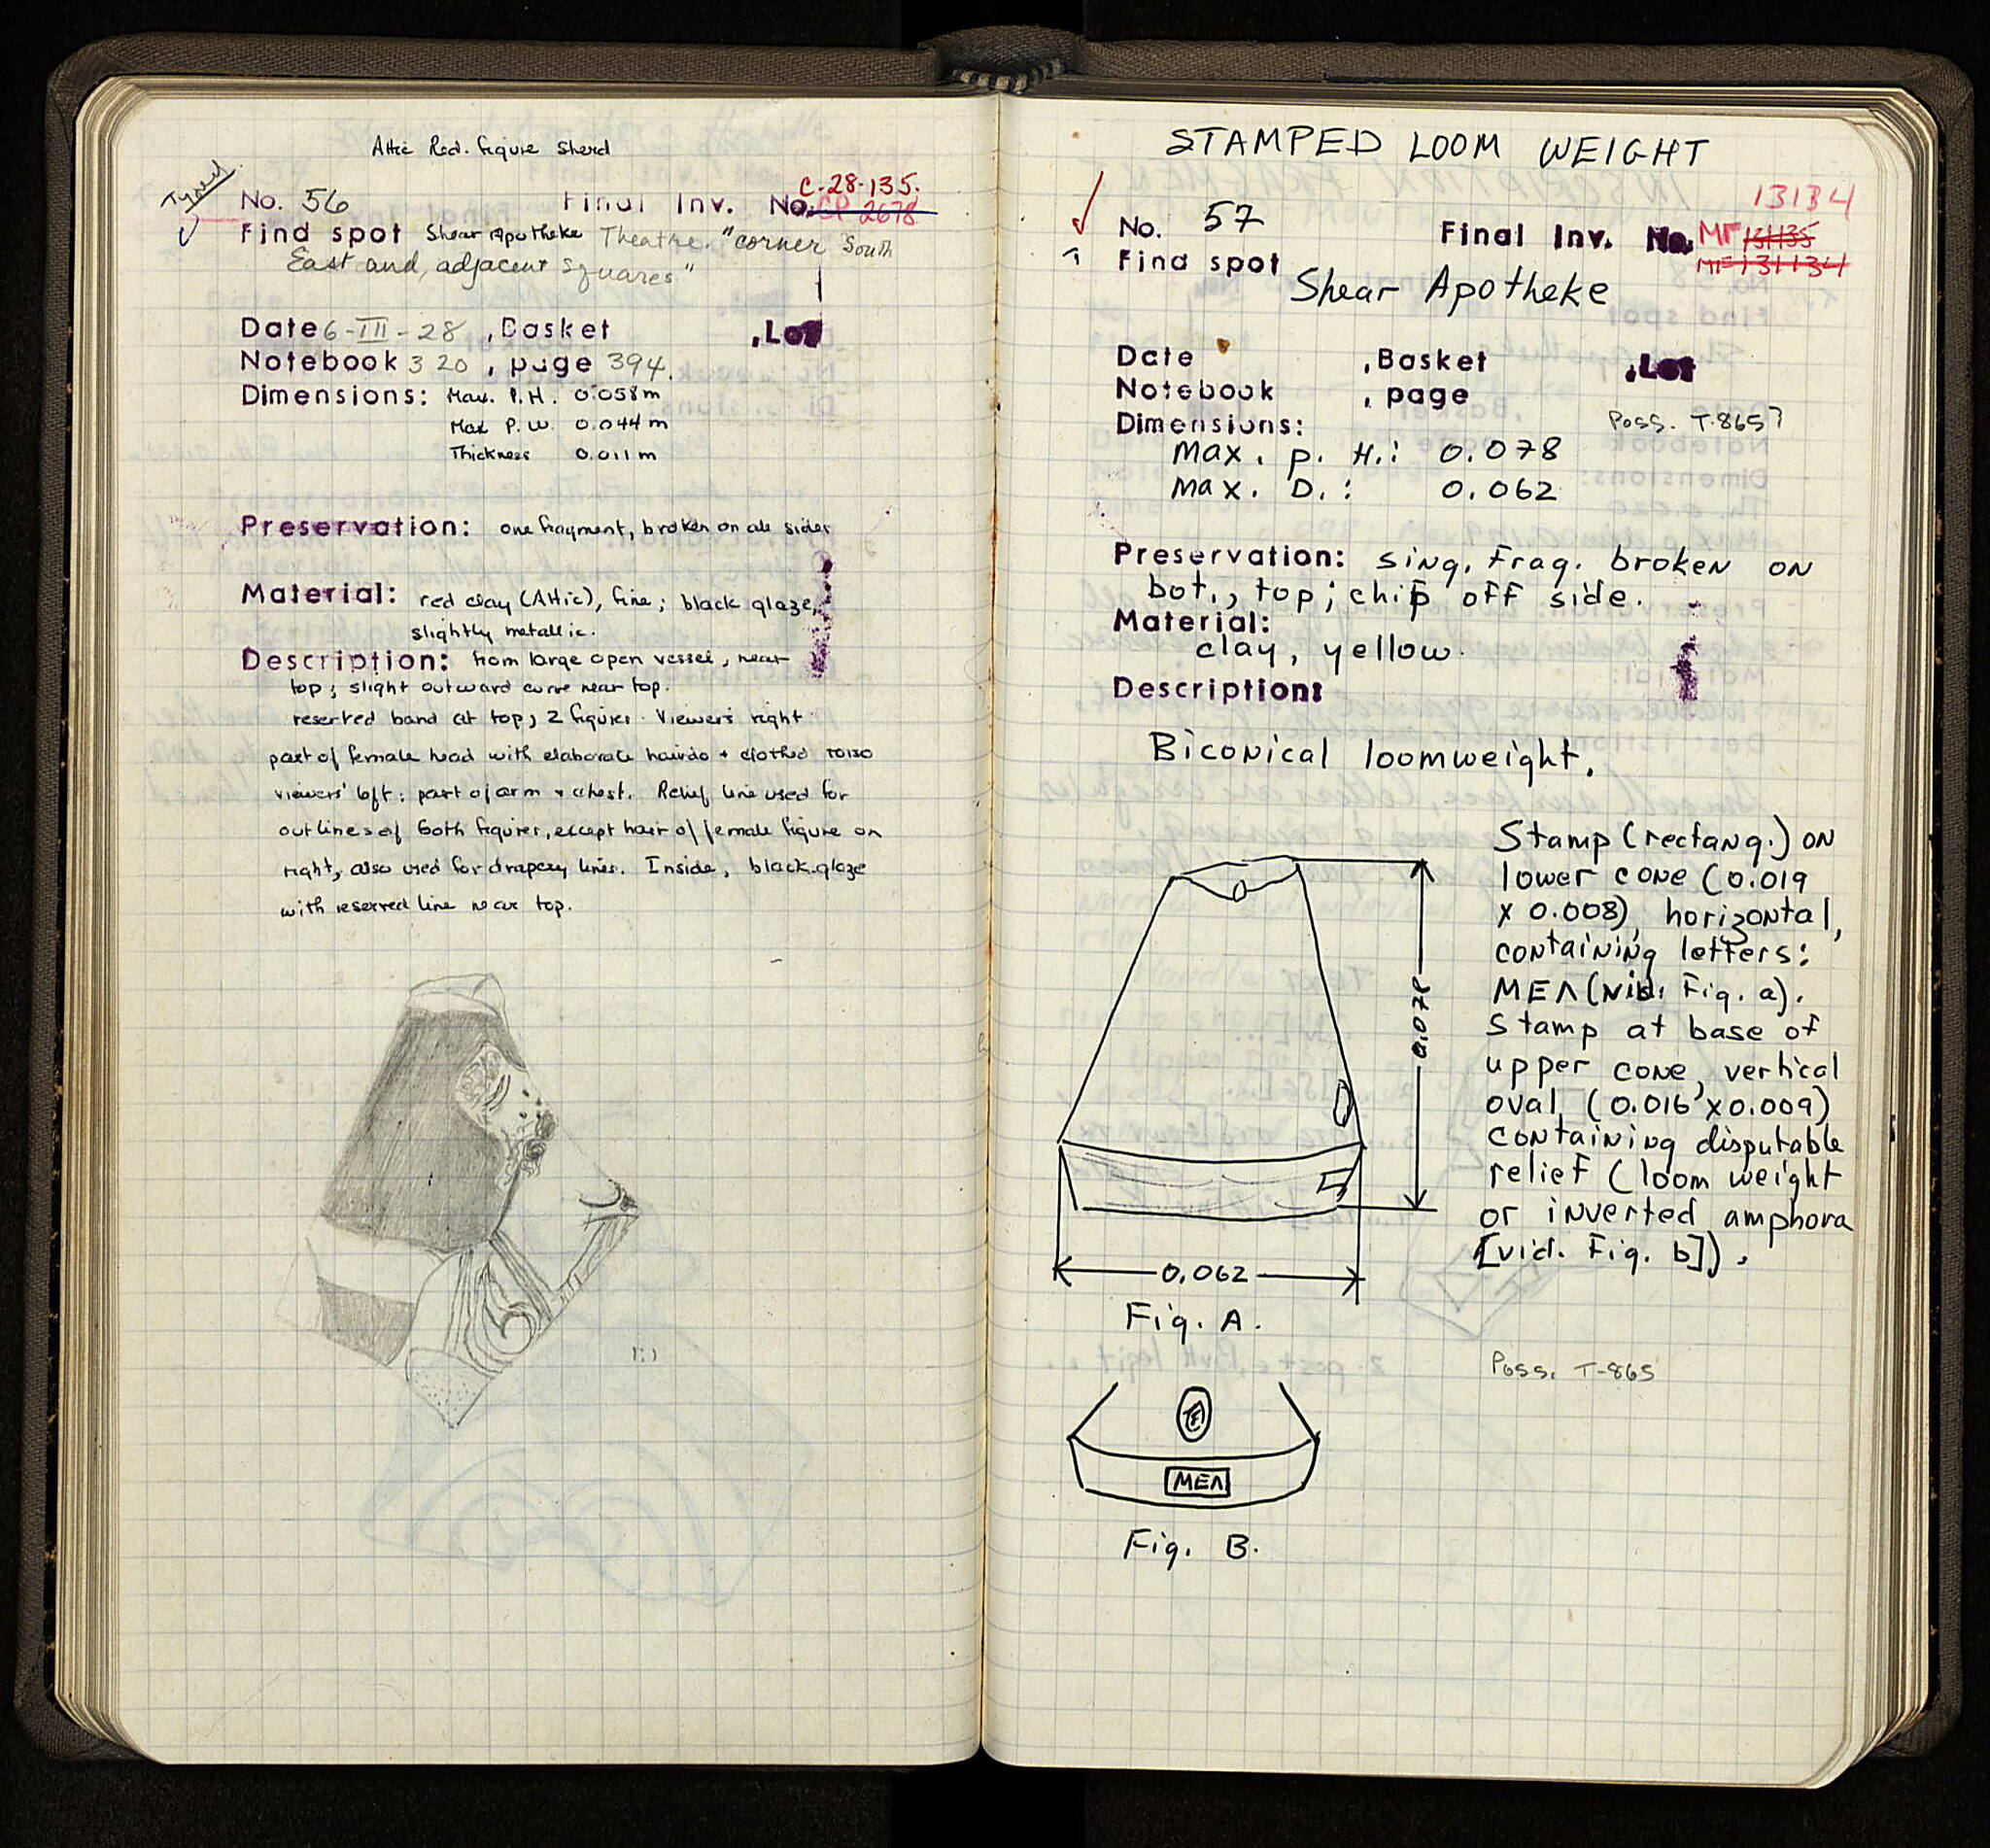 Attic Red. figure Sherd
Typed
C-28-135.
No. 56 Final Inv. No. CP 2678
Find spot Shear Apotheke Theatre. "corner South
East and adjacent squares"
Date 6-III-28 , Basket , Lot
Notebook 320 , page 394.
Dimensions: Max. P.H. 0.058m
Max P.W. 0.044 m
Thickness 0.011 m
Preservation: one fragment, broken on all sides
Material: red clay (Attic), fine; black glaze,
slightly metallic.
Description: from large open vessel, near
top; slight outward curve near top.
reserved band at top; 2 figures. Viewers' right
part of female head with elaborate hairdo + clothed torso
viewers' left: part of arm + chest. Relief line used for
outlines of both figures, except hair of female figure on
right, also used for drapery lines. Inside, black glaze
with reserved line near top.
STAMPED LOOM WEIGHT
13134
No. 57 Final Inv. No. MF 13135
MF 131134
Find spot
Shear Apotheke
Date , Basket , Lot
Notebook , page
Dimensions: Poss. T-865?
Max. p. H.: 0.078
Max. D.: 0.062
Preservation: sing. Frag. broken on
bot., top; chip off side.
Material:
clay, yellow.
Description:
Biconical loomweight.
Stamp (rectang.) on
lower cone (0.019
x 0.008), horizontal,
containing letters:
MEΛ (vid. Fig. a).
Stamp at base of
upper cone, vertical
oval, (0.016 x 0.009)
containing disputable
relief (loom weight
or inverted amphora
[vid. Fig. b]).
0.078
0.062
Fig. A.
Poss. T-865
MEΛ
Fig. B.